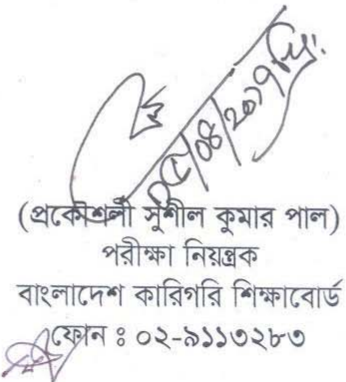 (প্রকৌশলী সুশীল কুমার পাল)
পরীক্ষা নিয়ন্ত্রক
বাংলাদেশ কারিগরি শিক্ষাবোর্ড
ফোন ঃ ০২-৯১১৩২৮৩